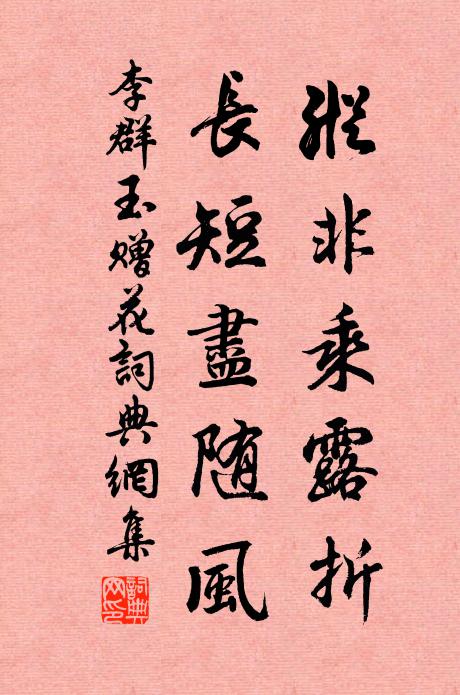 縱非乘露折
長短盡随風
李群玉赠花詞典網集
詞典網印